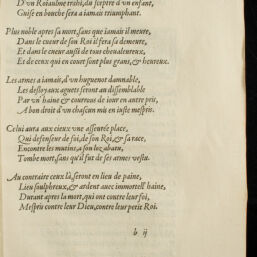 D'vn Roiaulme trahi, du sceptre d'vn enfant,
Guise en bouche sera a iamais triumphant.
Plus noble apres sa mort, sans que iamais il meure,
Dans le cueur de son Roi il fera sa demeure,
Et dans le cueur aussi de tous cheualeureux,
Et de ceux qui en court sont plus grans, & heureux.
Les armes a iamais, d'vn huguenot damnable,
Les desloyaux aguets seront au dissemblable
Par vn' haine & courroux de iour en autre pris,
A bon droit d'vn chascun mis en iuste mespris.
Celui aura aux cieux vne asseurée place,
Qui defenseur de foi, de son Roi, & sa race,
Encontre les mutins, a son loz abatu,
Tombe mort, sans qu'il fut de ses armes vestu.
Au contraire ceux là, seront en lieu de paine,
Lieu soulphreux, & ardent auec immortell' haine,
Durant apres la mort, qui ont contre leur foi,
Mespris contre leur Dieu, contre leur petit Roi.
b ij